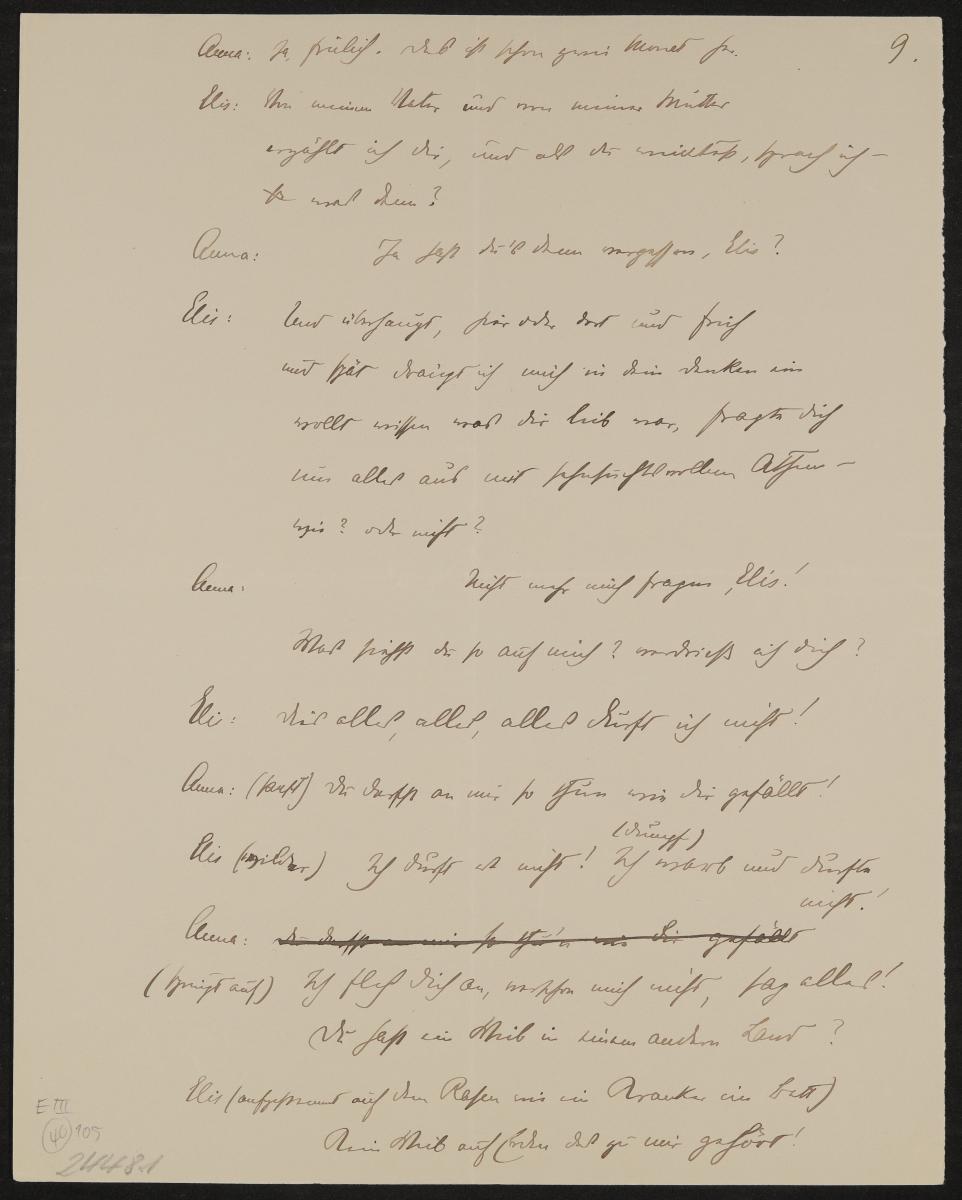 9.
Anna: Ja, freilich. Das ist schon zwei Monat her.
Elis: Von meinem Vater und von meiner Mutter
erzählt ich dir, und als du wissen, sprach ich –
was denn?
Anna: Ja hast du's denn vergessen, Elis?
Elis: Und überhaupt, hier oder dort und früh
und spät drängt ich mich in dein Denken ein
wollt wissen was dir lieb war, fragte dich
um alles aus mit sehnsuchtsvollem Athem –
wie? oder nicht?
Anna: Nicht mehr mich fragen, Elis!
Was siehst du so auf mich? verdrieß ich dich?
Elis: Dies alles, alles, alles durft ich nicht!
Anna: (sanft) Du darfst an mir so thun wie dir gefällt!
(dumpf)
Elis (wilder) Ich durft es nicht! Ich warb und durfte
nicht!
Anna: du darfst an mir so thu'n wie dir gefällt
(springt auf) Ich fleh dich an, verschon mich nicht, sag alles!
Du hast ein Weib in einem andern Land?
Elis (auf dem Rasen wie ein Kranker im Bett)
Kein Weib auf Erden das zu mir gehört!
E III
40
105
24481